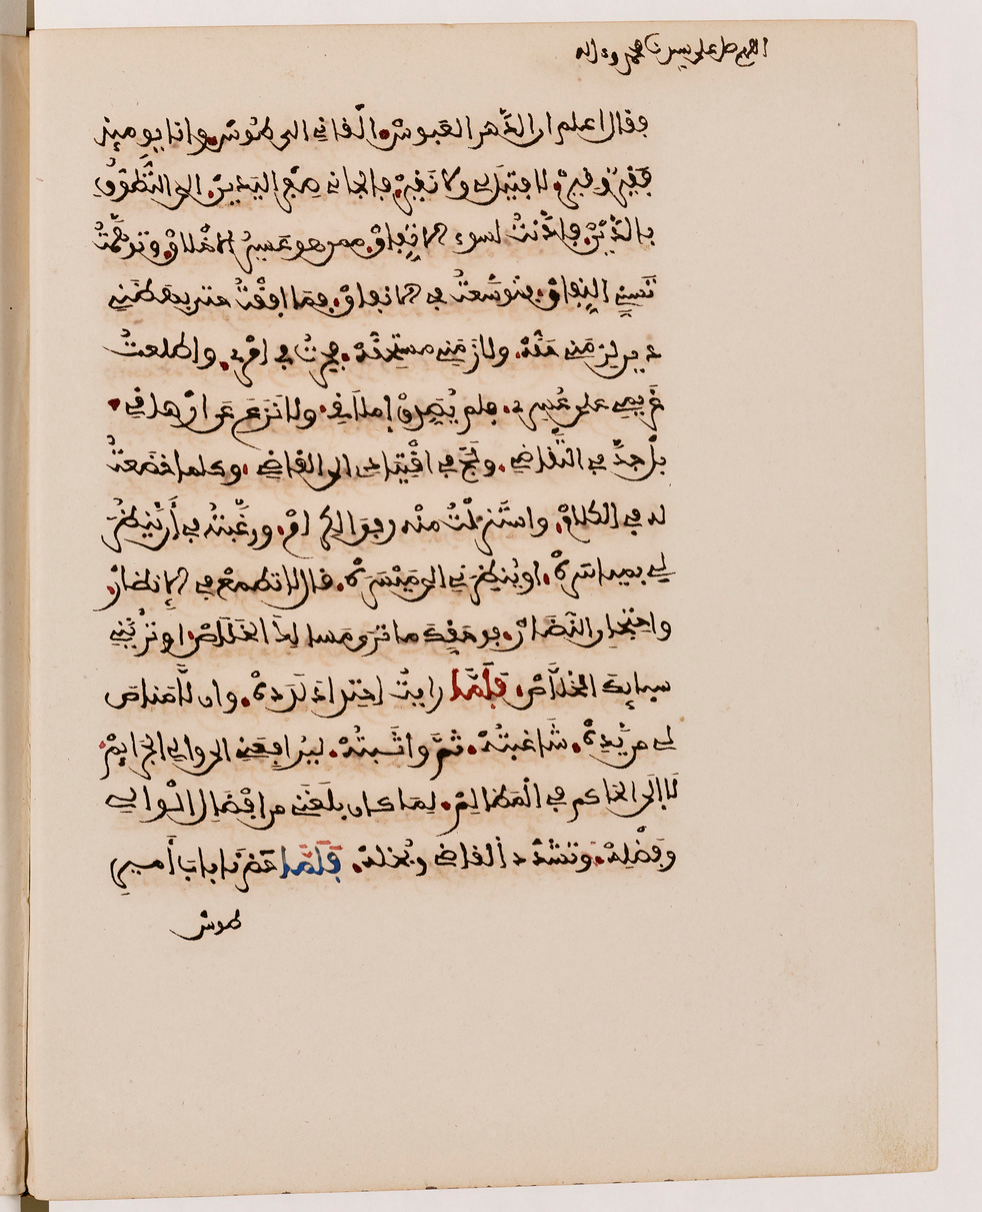 اللهم صل على سيدنا محمد وءاله
فقال اعلم ان الدَّهر العَبوسْ، الْقانِي الى طُوسْ، وانا يوميذ
فَقِيرٌ وَقِيرْ، لا فتيل لي ولا نَقِيرْ، فالجأنِي صِفْر اليَدَيْنْ، الى التَّطَوُّقِ
بالدَّيْنْ، فادَّنتُ لسوء الاتِّفاقْ، ممن هو عَسِرُ الاخْلاقْ، وتوهَّمتُ
تَسَنِّي النِّفاقْ، فتوسَّعتُ في الانفاقْ، فما افَقْتُ حتى بهظَنِي
دين لزمَني حَقُّهْ، ولازمَنِي مستحِقُّهْ، فحِرْتُ في امْرِي، واطلعتُ
غَرِيمِي على عُسرِي، فلم يُصَدِّقْ إملاقِي، ولا نَزَعَ عَن ارْهاقِي،
بلْ جدَّ في التَّقاضِي، ولَجَّ في اقْتِيادِي الى القاضِي، وكلما خضَعتُ
له في الكلامْ، واستَنزلْتُ منه رفق الكرامْ، ورغَّبتُه في أَنْ يَنظُرَ
لِي بمياسَرةْ، او يُنظِرَنِي الى مَيْسَرةْ، قال لا تطمعْ في الإنظارْ،
واحْتِجانِ النُّضارْ، فو حَقِّكَ ما تَرى مَسالِكَ الخَلاصْ، او تُرِيَنِي
سبائِكَ الخِلاصْ، فَلَمَّا رايتُ احتدادَ لَدَدِهْ، وان لَّا مَناصَ
لِي من يَّدِهْ، شَاغَبتُهْ، ثمَّ واثَبتُهْ، ليُرافِعَنِي الى والِي الجَرايمْ،
لَا إلَى الحاكم في الْمَظالِمْ، لِما كان بلَغَنِي من افْضالِ الْوالي
وفَضْلِهْ، وتشدُّدِ ألقاضِي وبُخلهْ، فَلَمَّا حَضَرْنا بابَ أَميرِ
طوس